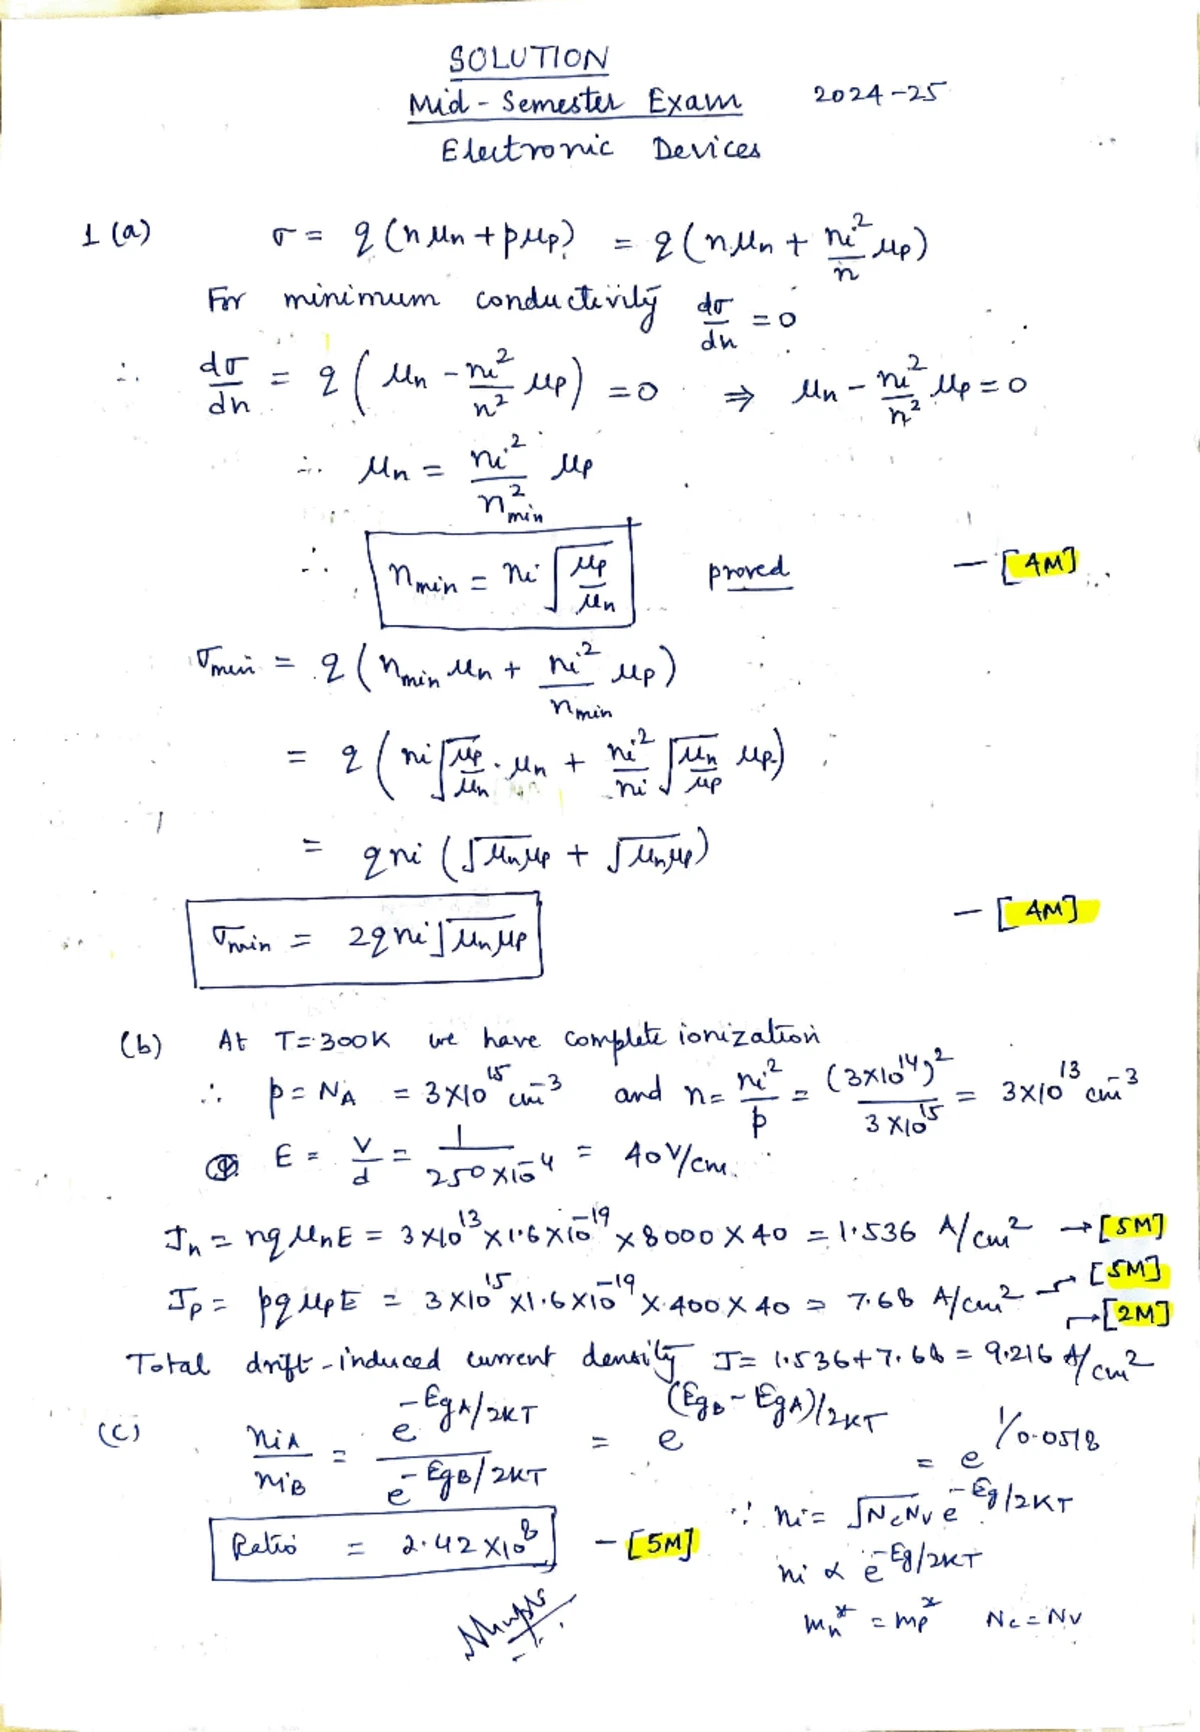 SOLUTION
Mid-Semester Exam 2024-25
Electronic Devices
1 (a) σ = q (n μn + p μp) = q (n μn + ni²/n μp)
For minimum conductivity dσ/dn = 0
∴ dσ/dn = q ( μn - ni²/n² μp) = 0 ⇒ μn - ni²/n² μp = 0
∴ μn = ni²/n²min μp
∴ nmin = ni √(μp/μn) proved — [4M]
σmin = q ( nmin μn + ni²/nmin μp)
= q ( ni √(μp/μn) . μn + ni²/ni √(μn/μp) μp)
= q ni ( √μnμp + √μnμp)
σmin = 2q ni √μnμp — [4M]
(b) At T=300K we have complete ionization
∴ p = NA = 3×10¹⁵ cm⁻³ and n = ni²/p = (3×10¹⁴)²/3×10¹⁵ = 3×10¹³ cm⁻³
E = V/d = 1/250×10⁻⁴ = 40 V/cm.
Jn = nq μn E = 3×10¹³ × 1.6×10⁻¹⁹ × 8000 × 40 = 1.536 A/cm² → [5M]
Jp = pq μp E = 3×10¹⁵ × 1.6×10⁻¹⁹ × 400 × 40 = 7.68 A/cm² → [5M]
→ [2M]
Total drift-induced current density J = 1.536+7.68 = 9.216 A/cm²
(c) niA/niB = e^(-EgA/2KT)/e^(-EgB/2KT) = e^((EgB - EgA)/2KT) = e^(1/0.0518)
∵ ni = √NcNv e^(-Eg/2KT)
Ratio = 2.42 ×10⁸ — [5M]
ni ∝ e^(-Eg/2KT)
mn* = mp* Nc = Nv